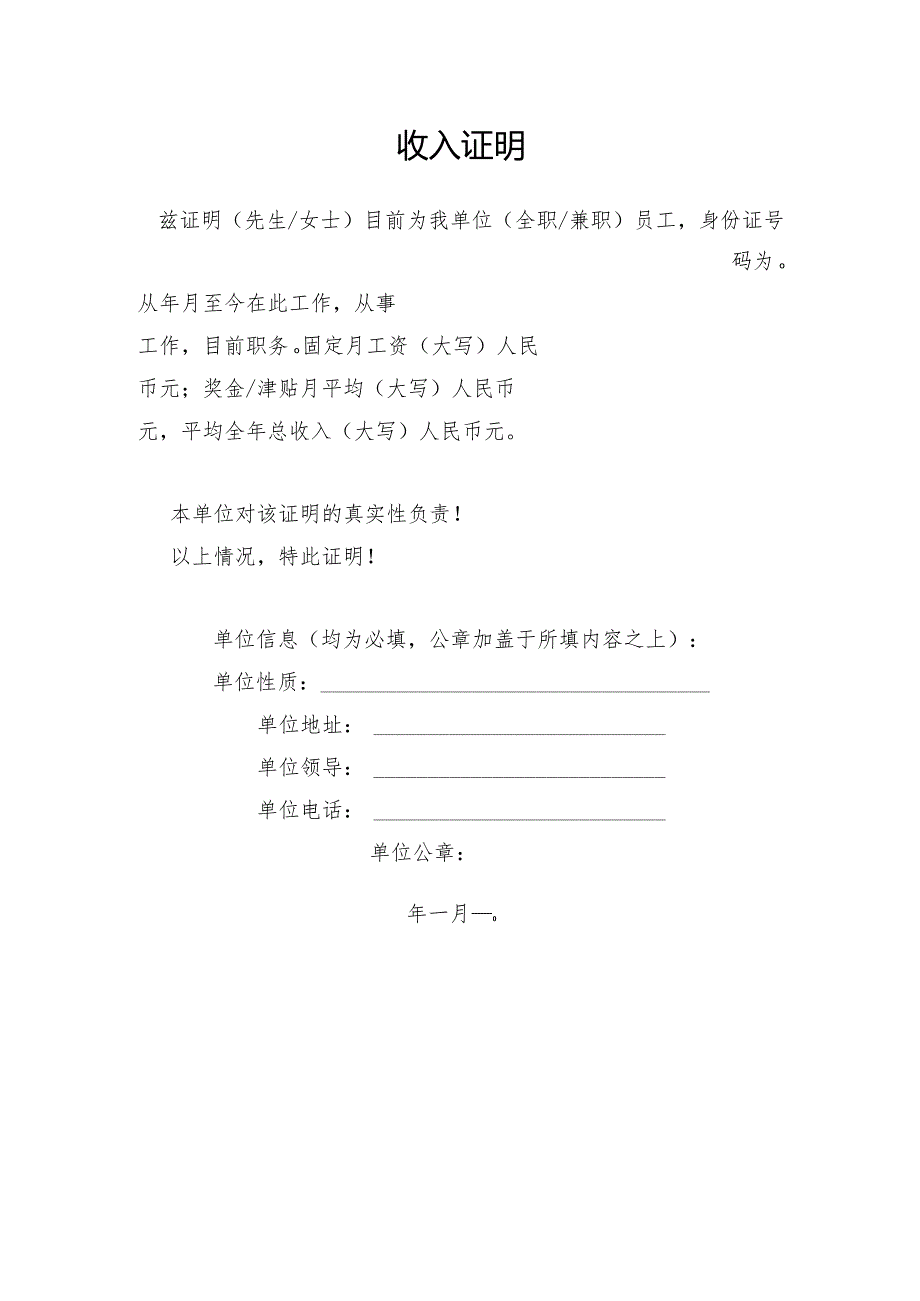 收入证明
兹证明（先生/女士）目前为我单位（全职/兼职）员工，身份证号
码为。
从年月至今在此工作，从事
工作，目前职务。固定月工资（大写）人民
币元；奖金/津贴月平均（大写）人民币
元，平均全年总收入（大写）人民币元。
本单位对该证明的真实性负责！
以上情况，特此证明！
单位信息（均为必填，公章加盖于所填内容之上）：
单位性质：____________________________________
单位地址：___________________________
单位领导：___________________________
单位电话：___________________________
单位公章：
年一月—。